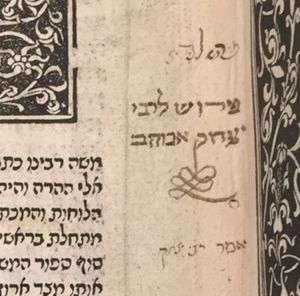 פירוש לרבי
יצחק אבוהב
אמר רבי יצחק
משה רבינו כתב
אלי ההרה והיה
הלוחות והמכת
מתחלת בראשי
סוף ספור המש
אותו מצד ארון